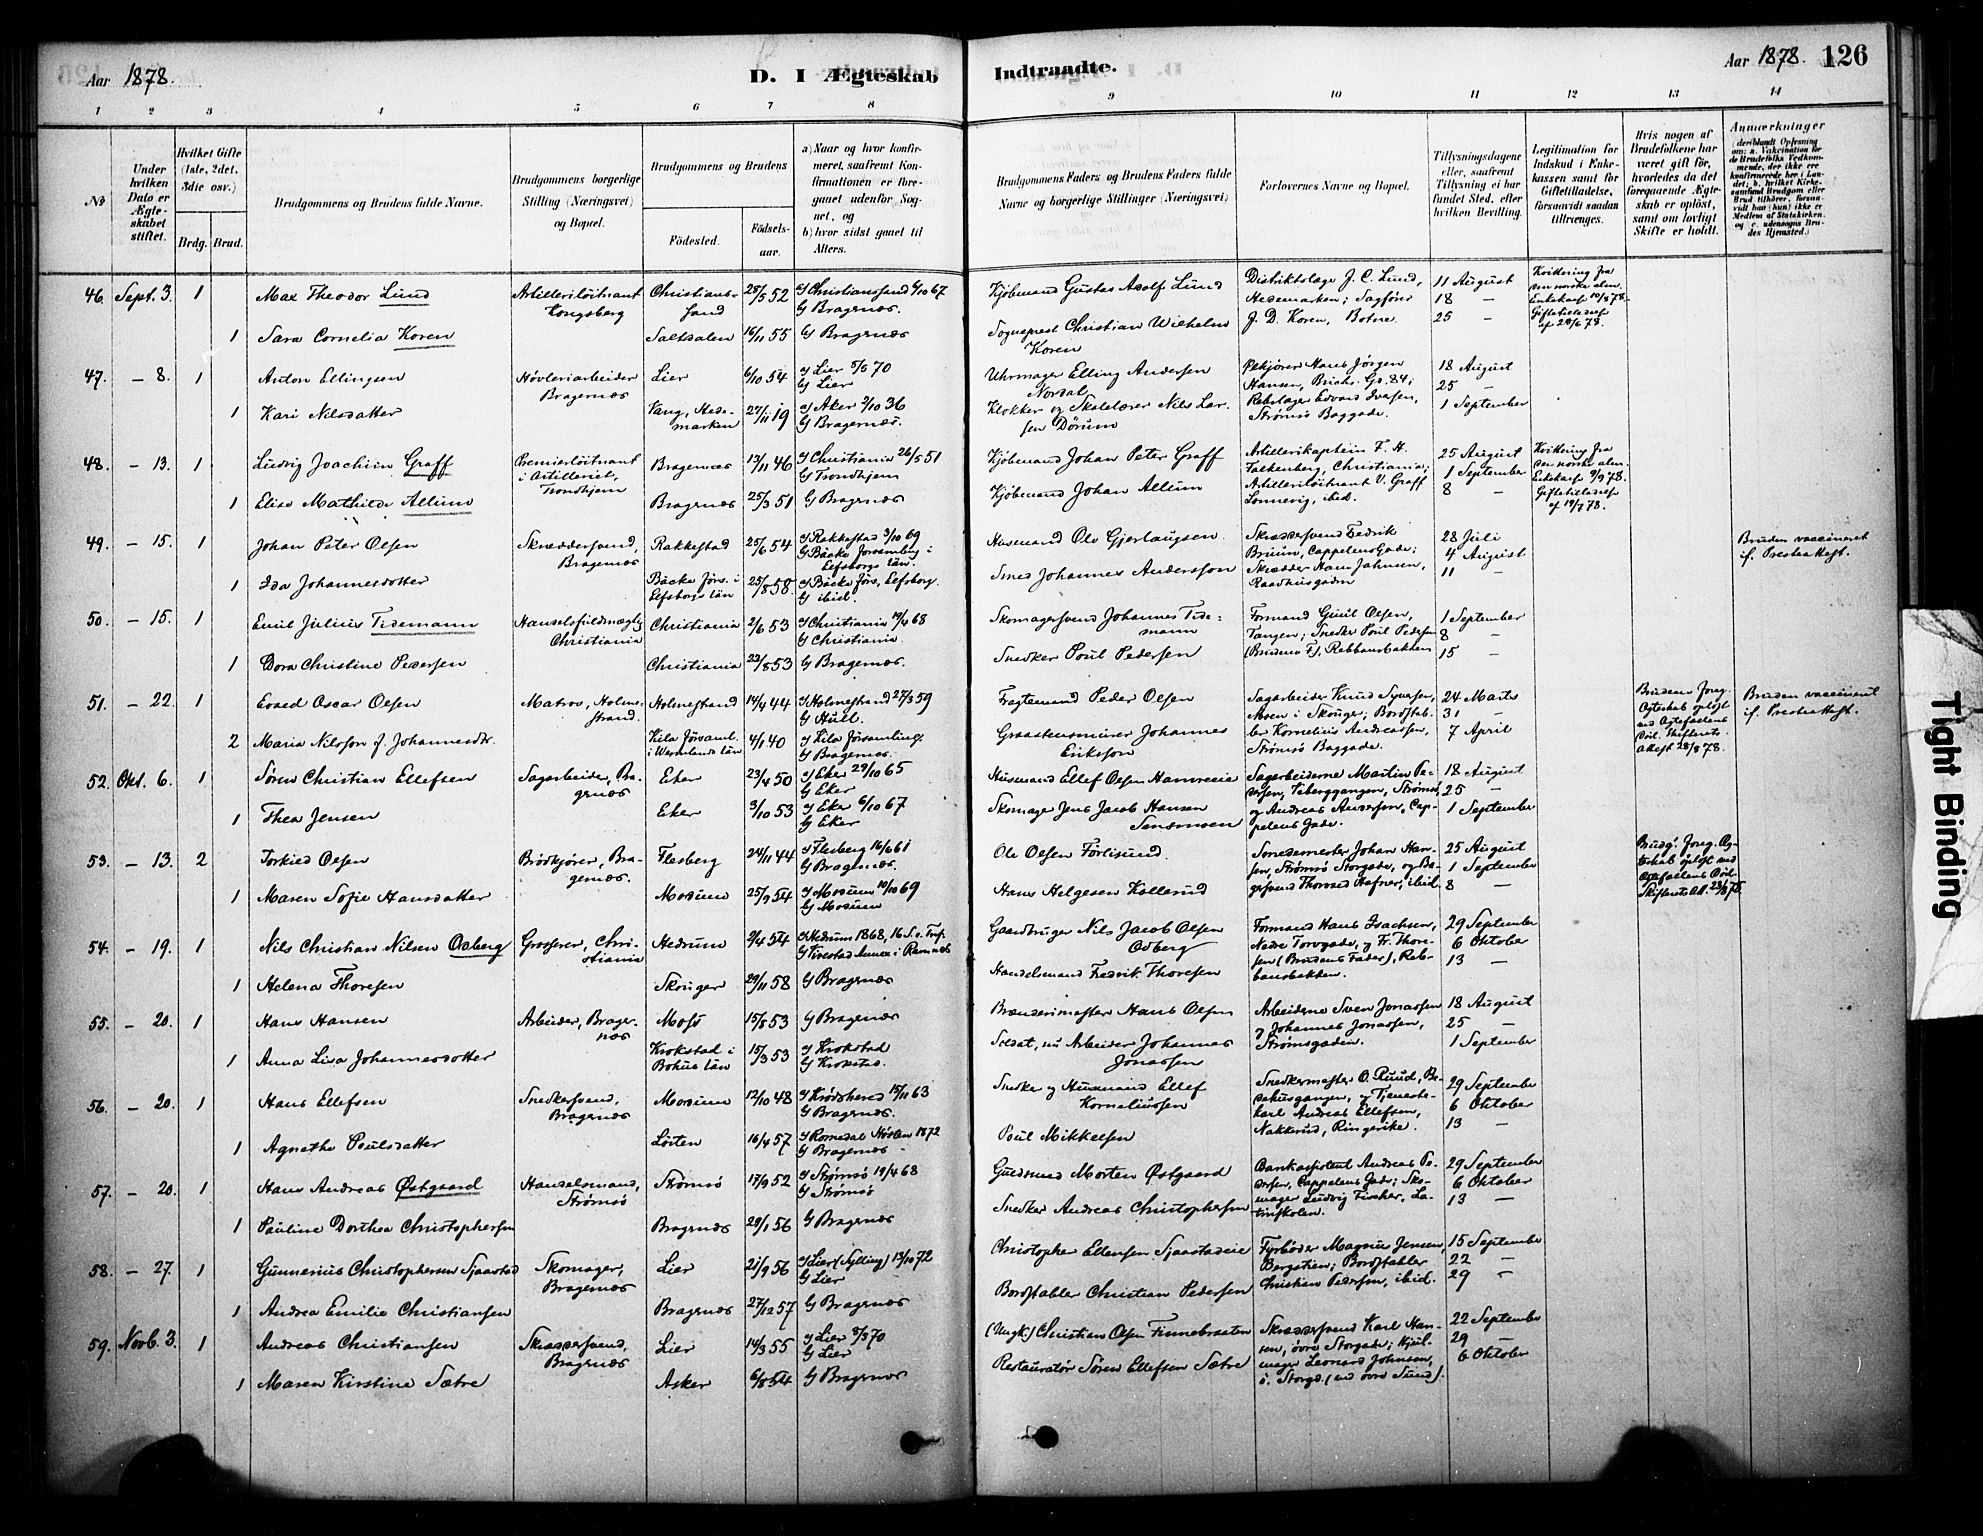 Aar 1878.
D. I Ægteskab
Indtraadte.
Aar 1878. 126
1 2 3 4 5 6 7 8 9 10 11 12 13 14
No
Under hvilken Dato er Ægteskabet stiftet.
Hvilket Gifte (1ste, 2det, 3die osv.)
Brdg. Brud.
Brudgommens og Brudens fulde Navne.
Brudgommens borgerlige Stilling (Næringsvei) og Bopæl.
Brudgommens og Brudens
Fødested.
Fødselsaar.
a) Naar og hvor konfirmeret, saafremt Konfirmationen er foregaaet udenfor Sognet, og
b) hvor sidst gaaet til Alters.
Brudgommens Faders og Brudens Faders fulde Navne og borgerlige Stillinger (Næringsvei)
Forlovernes Navne og Bopæl.
Tillysningsdagene eller, saafremt Tillysning ei har fundet Sted, efter hvilken Bevilling.
Legitimation for Indskud i Enkekassen samt for Giftetilladelse, forsaavidt saadan tiltrænges.
Hvis nogen af Brudefolkene har været gift før, hvorledes da det foregaaende Ægteskab er opløst, samt om lovligt Skifte er holdt.
Anmærkninger
46. Sept. 3. 1 Max Theodor Lund
Artilleriløitnant Kongsberg
Christianssand 25/5 52
a) Christianssand 6/10 67
b) Bragernæs.
Kjøbmand Gustav Adolf Lund
Distriktslæge J. C. Lund, Hedemarken; Sagfører J. D. Koren, Botne.
11 August
18 —
25 —
Kvittering fra den norske alm. Enkekasse 10/8 78. Giftetilladelse af 28/6 78.
1 Sara Cornelia Koren
Saltdalen 16/11 55 b) Bragernæs
Sogneprest Christian Wilhelm Koren
47. — 8. 1 Anton Ellingsen
Høvleriarbeider Bragernæs
Lier 6/10 54
a) Lier 5/5 70
b) Lier
Uhrmager Elling Andersen Nordal
18 August
25 —
1 September
1 Kari Nilsdatter
Vang, Hedemarken 27/11 19
a) Aker 2/10 36
b) Bragernæs.
Klokker og Skolelærer Nils Larsen Dørum
Rebslager Edvard Iversen, Strømsø Baggade.
48. — 13. 1 Ludvig Joachim Graff
Premierløitnant i Artilleriet, Trondhjem
Bragernæs 13/11 46
a) Christiania 26/5 51
b) Trondhjem
Kjøbmand Johan Peter Graff
Artillerikaptein F. H. Falkenberg, Christiania; Artilleriløitnant V. Graff Lonnevig, ibid.
25 August
1 September
8 —
Kvittering fra den norske alm. Enkekasse 9/9 78. Giftetilladelse af 12/9 78.
1 Elise Mathilde Allum
Bragernæs 25/3 51 b) Bragernæs
Kjøbmand Johan Allum
49. — 15. 1 Johan Peter Olsen
Skræddersvend, Bragernæs
Rakkestad 25/6 54
a) Rakkestad 3/10 69
b) Bäcke Forsamling i Elfsborgs län.
Husmand Ole Gjerlaugsen
Skræddersvend Fredrik Bruun, Cappelens Gade; Skrædder Hans Jahnsen, Raadhusgaden
28 Juli
4 August
11 —
Bruden vaccineret if. Presteattest.
1 Ida Johannesdotter
Bäcke Førs. i Elfsborgs län 25/8 58.
a) Bäcke Førs., Elfsborg.
b) ibid.
Smed Johannes Andersson
50. — 15. 1 Emil Julius Tidemann
Handelsfuldmægtig Christiania
Christiania 2/6 53
a) Christiania 19/4 68
b) Christiania.
Skomagersvend Johannes Tidemann
Formand Gunil Olsen, Tangen; Snedker Poul Pedersen (Brudens F.), Rebbansbakken
1 September
8 —
15 —
1 Dora Christine Pedersen
Christiania 22/8 53 b) Bragernæs.
Snedker Poul Pedersen
51. — 22. 1 Edvard Oscar Olsen
Matros, Holmestrand.
Holmestrand 14/4 44
a) Holmestrand 27/3 59
b) Hull.
Fragtemand Peder Olsen
Sagarbeider Knud Syversen, Aasen i Skouger; Bordstabler Kornelius Andreassen, Strømsø Baggade.
24 Marts
31 —
7 April
Brudens foreg. Egteskab opløst ved Egtefællens Død. Skifterets Attest 28/8 78.
Bruden vaccineret if. Presteattest.
2 Maria Nilsson f. Johannesdtr.
Kila Førsaml. i Wermlands län 4/1 40
a) Kila Førsamling.
b) Bragernæs.
Graastensmurer Johannes Eriksson
52. Okt. 6. 1 Søren Christian Ellefsen
Sagarbeider, Bragernæs
Eker 23/4 50
a) Eker 29/10 65
b) Eker
Husmand Ellef Olsen Hamreeie
Sagarbeiderne Martin Pedersen, Liberggangen, Strømsø, og Andreas Andersen, Cappelens Gade.
18 August
25 —
1 September
1 Thea Jensen
Eker 3/10 53
a) Eker 6/10 67
b) Eker
Skomager Jens Jacob Hansen Sensmoen
53. — 13. 2 Torkild Olsen
Brødkjører, Bragernæs.
Flesberg 24/11 44
a) Flesberg 16/6 61
b) Bragernæs.
Ole Olsen Førlisund.
Smedemester Johan Hansen, Strømsø Storgade, og Bagersvend Thorvald Hafner, ibid.
25 August
1 September
8 —
Brudg. foreg. Egteskab opløst ved Egtefællens Død. Skifterets Att. 23/8 78.
1 Maren Sofie Hansdatter
Modum 25/9 54
a) Modum 10/10 69
b) Modum
Hans Helgesen Kollerud
54. — 19. 1 Nils Christian Nilsen Odberg
Grosserer, Christiania
Hedrum 2/4 54
a) Hedrum 1868, 16 S. e. Trif.
b) Virestad Annex i Ramnæs
Gaardbruger Nils Jacob Olsen Odberg
Formand Hans Isachsen, Nedre Torvgade, og Fr. Thoresen (Brudens Fader), Rebbansbakken.
29 September
6 Oktober
13 —
1 Helena Thoresen
Skouger 29/11 58 b) Bragernæs
Handelsmand Fredrik Thoresen
55. — 20. 1 Hans Hansen
Arbeider, Bragernæs
Moss 15/8 53 b) Bragernæs
Brænderimester Hans Olsen
Arbeiderne Sven Jonassen og Johannes Jonassen, Strømsgaden.
18 August
25 —
1 September
1 Anna Lisa Johannesdotter
Krokstad i Bohus län 15/3 53
a) Krokstad
b) Krokstad.
Soldat, nu Arbeider Johannes Jonassen
56. — 20. 1 Hans Ellefsen
Snedkersvend, Bragernæs
Modum 12/10 48
a) Krødsherred 15/11 63
b) Bragernæs.
Snedker og Husmand Ellef Korneliussen
Snedkermester O. Ruud, Bedehusgangen, og Tjenestekarl Andreas Ellefsen, Nakkerud, Ringerike.
29 September
6 Oktober
13 —
1 Agnethe Poulsdatter
Løiten 16/4 57
a) Romedal Høsten 1872
b) Bragernæs
Poul Mikkelsen
57. — 20. 1 Hans Andreas Østgaard
Handelsmand, Strømsø
Strømsø 17/9 52
a) Strømsø 19/4 68
b) Strømsø
Guldsmed Morten Østgaard
Bankassistent Andreas Pedersen, Cappelens Gade; Skomager Ludvig Fischer, Latinskolen.
29 September
6 Oktober
13 —
1 Pauline Dorthea Christophersen
Bragernæs 28/1 56 b) Bragernæs
Snedker Andreas Christophersen
58. — 27. 1 Gunnerius Christophersen Sjaastad
Skomager, Bragernæs
Lier 21/9 56
a) Lier (Sylling) 13/10 72
b) Lier
Christopher Ellensen Sjaastadeie
Fyrbøder Magnus Jensen, Bergstien; Bordstabler Christian Pedersen, ibid.
15 September
22 —
29 —
1 Andrea Emilie Christiansen
Bragernæs 27/12 57 b) Bragernæs
Bordstabler Christian Pedersen
59. Novb. 3. 1 Andreas Christiansen
Skræddersvend, Bragernæs
Lier 14/3 55
a) Lier 8/5 70
b) Lier
(Ungk.) Christian Olsen Finnebraaten
Skræddersvend Karl Hansen, øvre Storgade; Hjulmager Leonard Johnsen, ø. Storgd. (ved øvre Sund).
22 September
29 —
6 Oktober
1 Maren Kirstine Sætre
Asker 6/8 54 b) Bragernæs
Restauratør Søren Ellefsen Sætre
Tight Binding